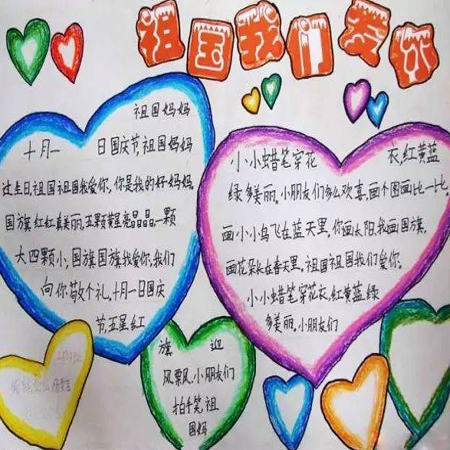 祖国我们爱你
祖国妈妈
十月一 日国庆节,祖国妈妈
过生日,祖国祖国我爱你,你是我的好妈妈。
国旗红红真美丽,五颗黄星亮晶晶,一颗
大四颗小,国旗国旗我爱你,我们
向你敬个礼。十月一日国庆
节,五星红
旗 迎
风飘飘,小朋友们
拍手笑,祖
国妈
小小蜡笔穿花 衣,红黄蓝
绿多美丽,小朋友们多么欢喜,画个图画比一比。
画小小鸟飞在蓝天里,你画太阳,我画国旗,
画花朵长在春天里,祖国祖国我们爱你。
小小蜡笔穿花衣,红黄蓝绿
多美丽,小朋友们